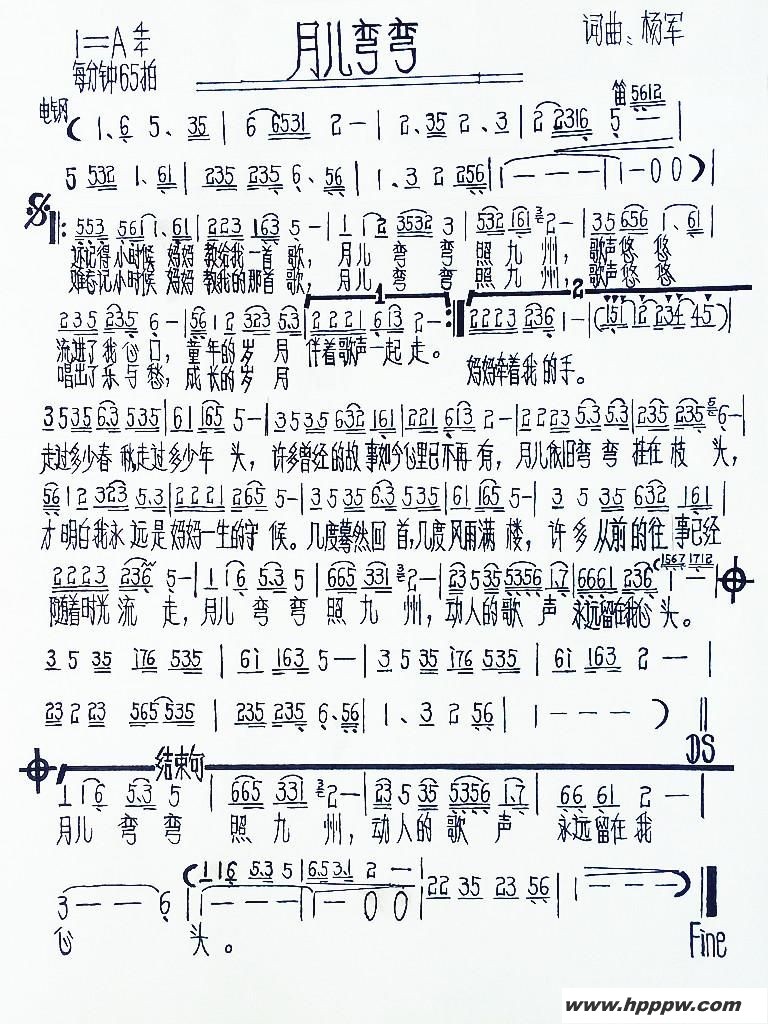 1=A 4/4 月儿弯弯 词曲：杨军
每分钟65拍
电钢 笛 5612
( 1. 6 5. 35 | 6 6531 2 - | 2. 35 2. 3 | 2 2316 5 - - |
5 532 1. 61 | 235 235 6. 56 | 1. 3 2 256 | 1 - - - | 1 - 0 0 ) |
553 5611. 61 | 223 163 5 - | 1 1 2 3532 3 | 532 161 2 - | 35 656 1. 61 |
还记得小时候 妈妈 教给我一首 歌， 月儿 弯 弯 照九州， 歌声悠 悠
难忘记小时候 妈妈 教我的那首 歌， 月儿 弯 弯 照九州， 歌声悠 悠
1 2
235 235 6 - | 56 1 2 323 5.3 | 2221 613 2 - :| 2223 236 1 - | (151 12 234 45) |
流进了我心门， 童年的岁月 伴着歌声一起走。 妈妈牵着我的手。
唱出了乐与愁， 成长的岁月
3535 6.3 535 | 61 165 5 - | 3535 632 161 | 221 613 2 - | 2223 5.3 5.3 | 235 235 6 - |
走过多少春 秋，走过多少年 头， 许多曾经的故事如今心里已不再有， 月儿依旧弯弯 挂在枝头，
56 12 323 5.3 | 2221 265 5 - | 3535 6.3 535 | 61 165 5 - | 3 5 35 632 161 |
才明白我永远是妈妈一生的守候。 几度蓦然回 首，几度风雨满 楼， 许多从前的往事已经
2223 236 5 - | 1 1 6 5.3 5 | 665 331 2 - | 23 5 35 5356 1.7 | 6661 236 1 - - |
1567 1712
随着时光流 走， 月儿 弯 弯 照九州， 动人的歌声 永远留在我心头。
3 5 35 i76 535 | 6i 163 5 - | 3 5 35 i76 535 | 6i 163 2 - |
23 2 23 565 535 | 235 235 6. 56 | 1. 3 2 56 | 1 - - - ) ‖
DS
结束句
1 1 6 5.3 5 | 665 331 2 - | 23 5 35 5356 1.7 | 66 61 2 - |
月儿 弯 弯 照 九 州， 动人的歌声 永远留在我
( 116 5.3 5 | 6.5 3.1 2 -
3 - - 6 | 1 - - - | 1 - 0 0 | 22 35 23 56 | 1 - - - ) ‖
心 头。 Fine
www.hpppw.com